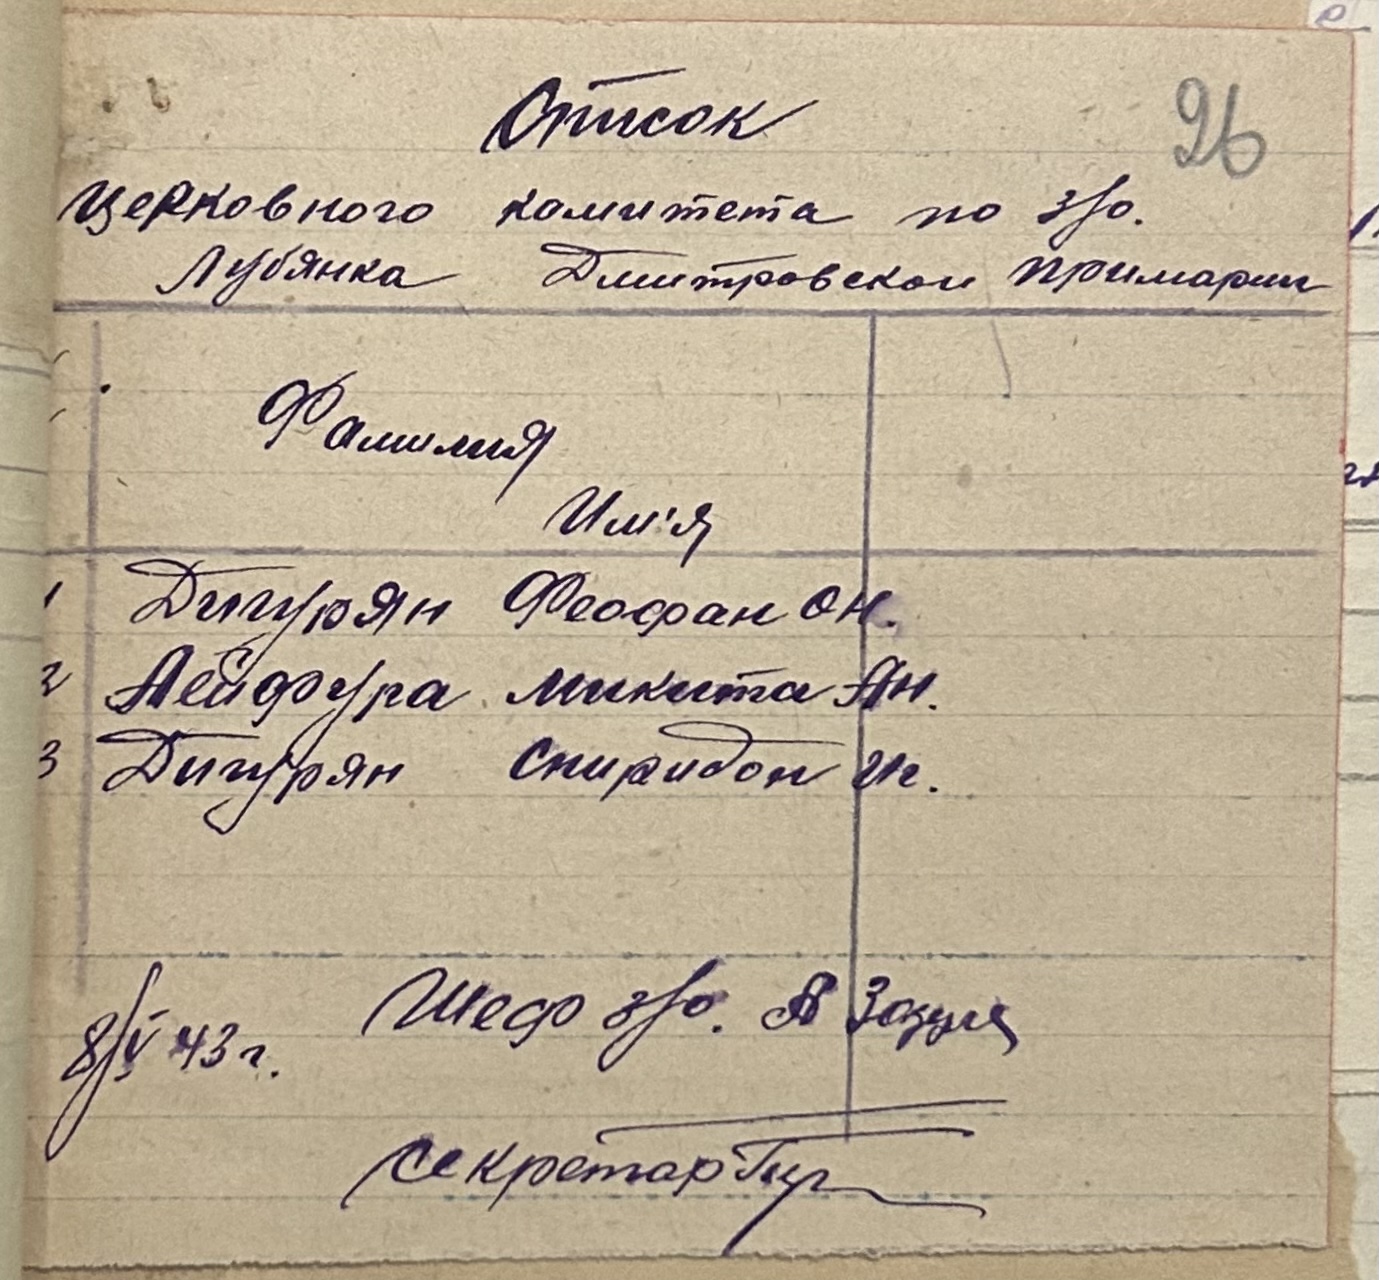 26
Список
Церковного комитета по з/о.
Лубянка Дмитровской примарии
Фамилия
Им'я
1 Дигурян Феофан Он.
2 Лейфура Микита Ан.
3 Дигурян Спиридон Ип.
8/V 43 г. Шеф з/о. Зозуля
Секретар